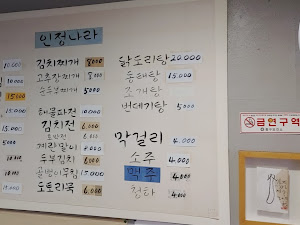 인정나라
10,000
김치찌개 8000
고추장찌개 8000
순두부찌개 5000
15,000
해물파전 10,000
15,000
김치전 6,000
5,000
계란말이
두부김치 6,000
골뱅이무침 15,000
도토리묵 6,000
닭도리탕 20,000
동태탕 15,000
조개탕
번데기탕 5,000
막걸리 4,000
소주 4,000
맥주 4,000
청하 4,000
금연구역